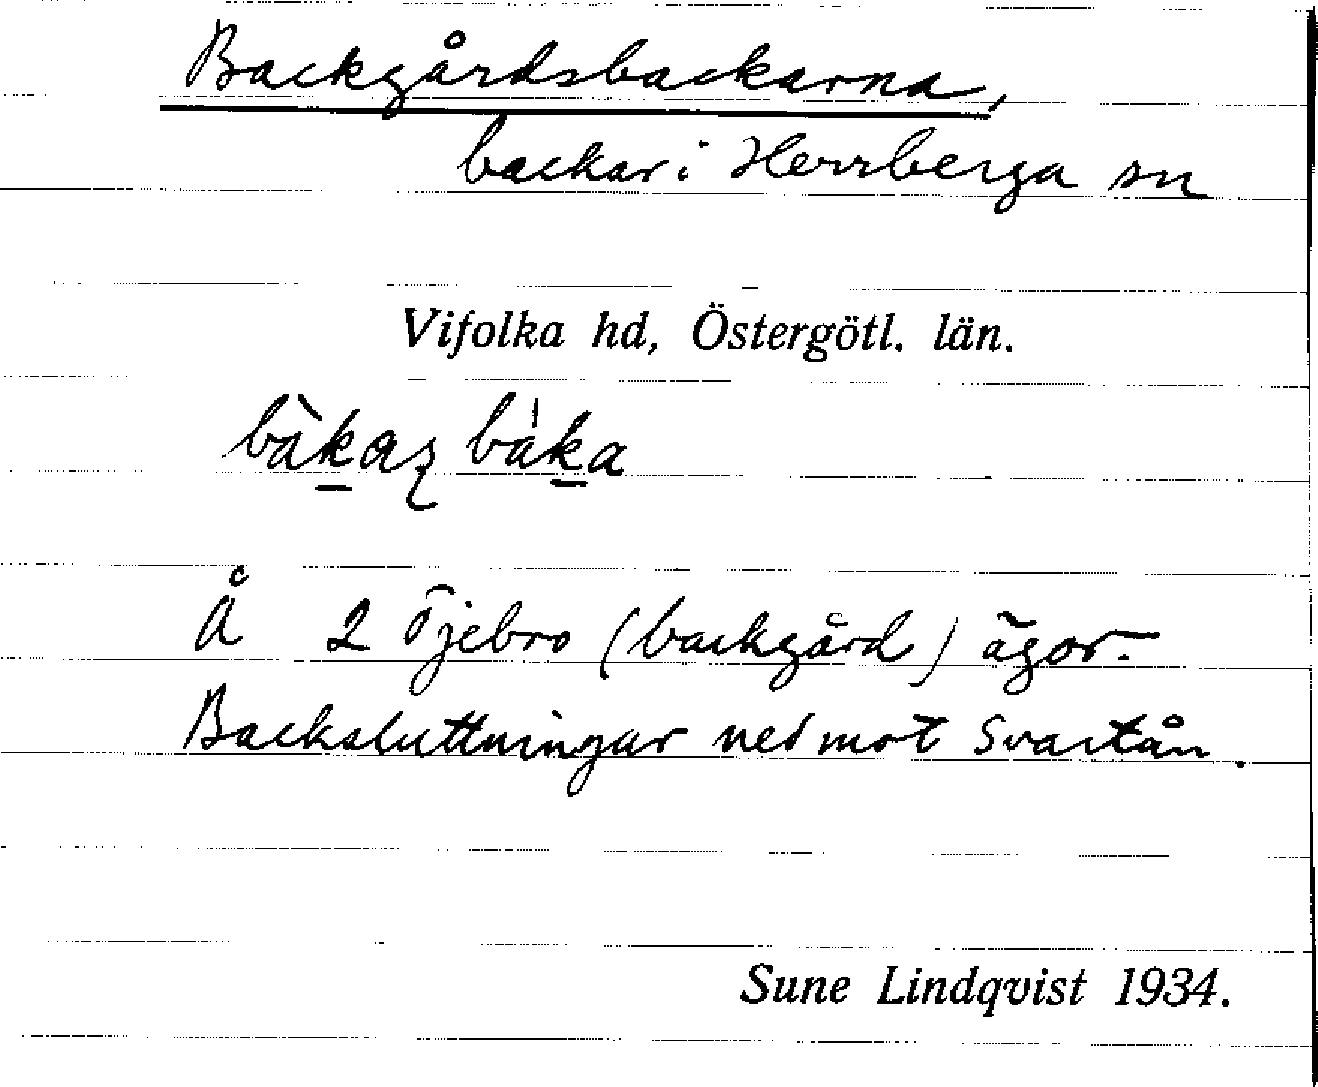 Backgårdsbackarna,
backar i Herrberga sn
Vifolka hd, Östergötl. län.
bàkaʒ bàka
Å 2 Öjebro (backgård) ägor.
Backsluttningar ned mot Svartån.
Sune Lindqvist 1934.